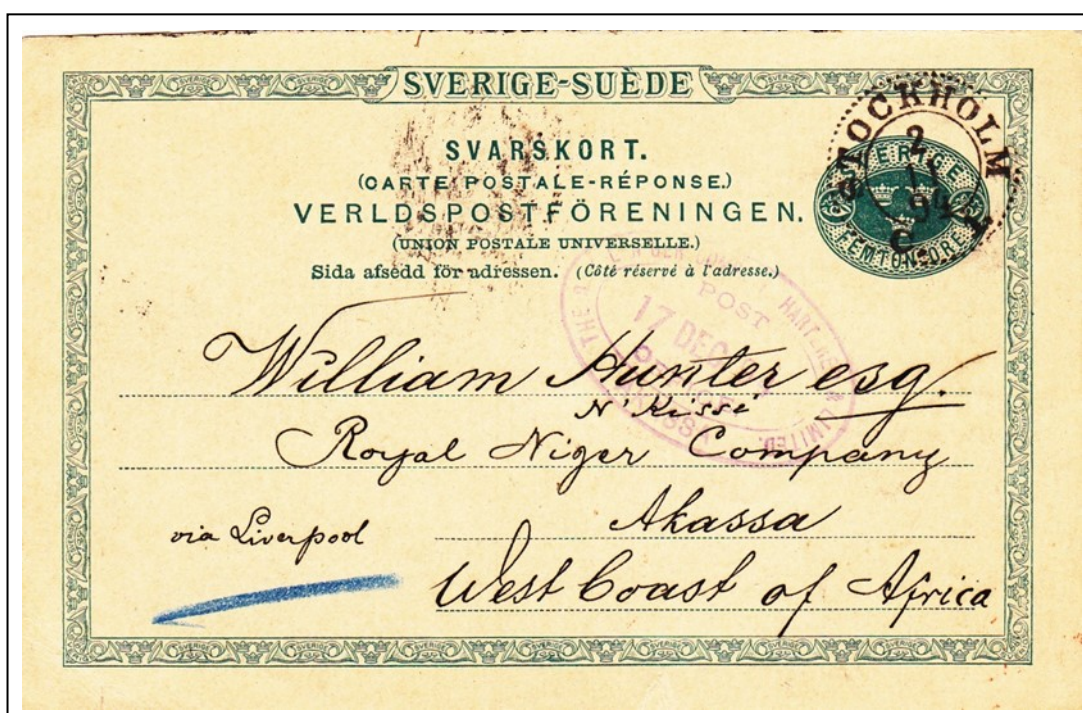 SVERIGE-SUÈDE
SVARSKORT.
(CARTE POSTALE-RÉPONSE.)
VERLDSPOSTFÖRENINGEN.
(UNION POSTALE UNIVERSELLE.)
Sida afsedd för adressen. (Côté réservé à l'adresse.)
STOCKHOLM
2
94
C
SVERIGE
FEMTON ÖRE
THE LIMITED.
POST
17 DEC
OFFICE
AKASSA
William Hunter esq.
N'Kissi
Royal Niger Company
Akassa
via Liverpool
West Coast of Africa